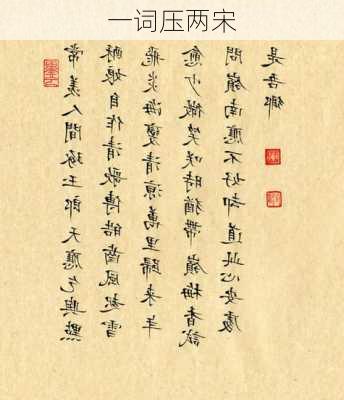 一词压两宋
常羨人間琢玉郎天應乞與點
酥娘自作清歌傳皓齒風起雪
飛炎海變清涼萬里歸來年
愈少微笑咲時猶帶嶺梅香試
問嶺南應不好却道此心安處
是吾鄉